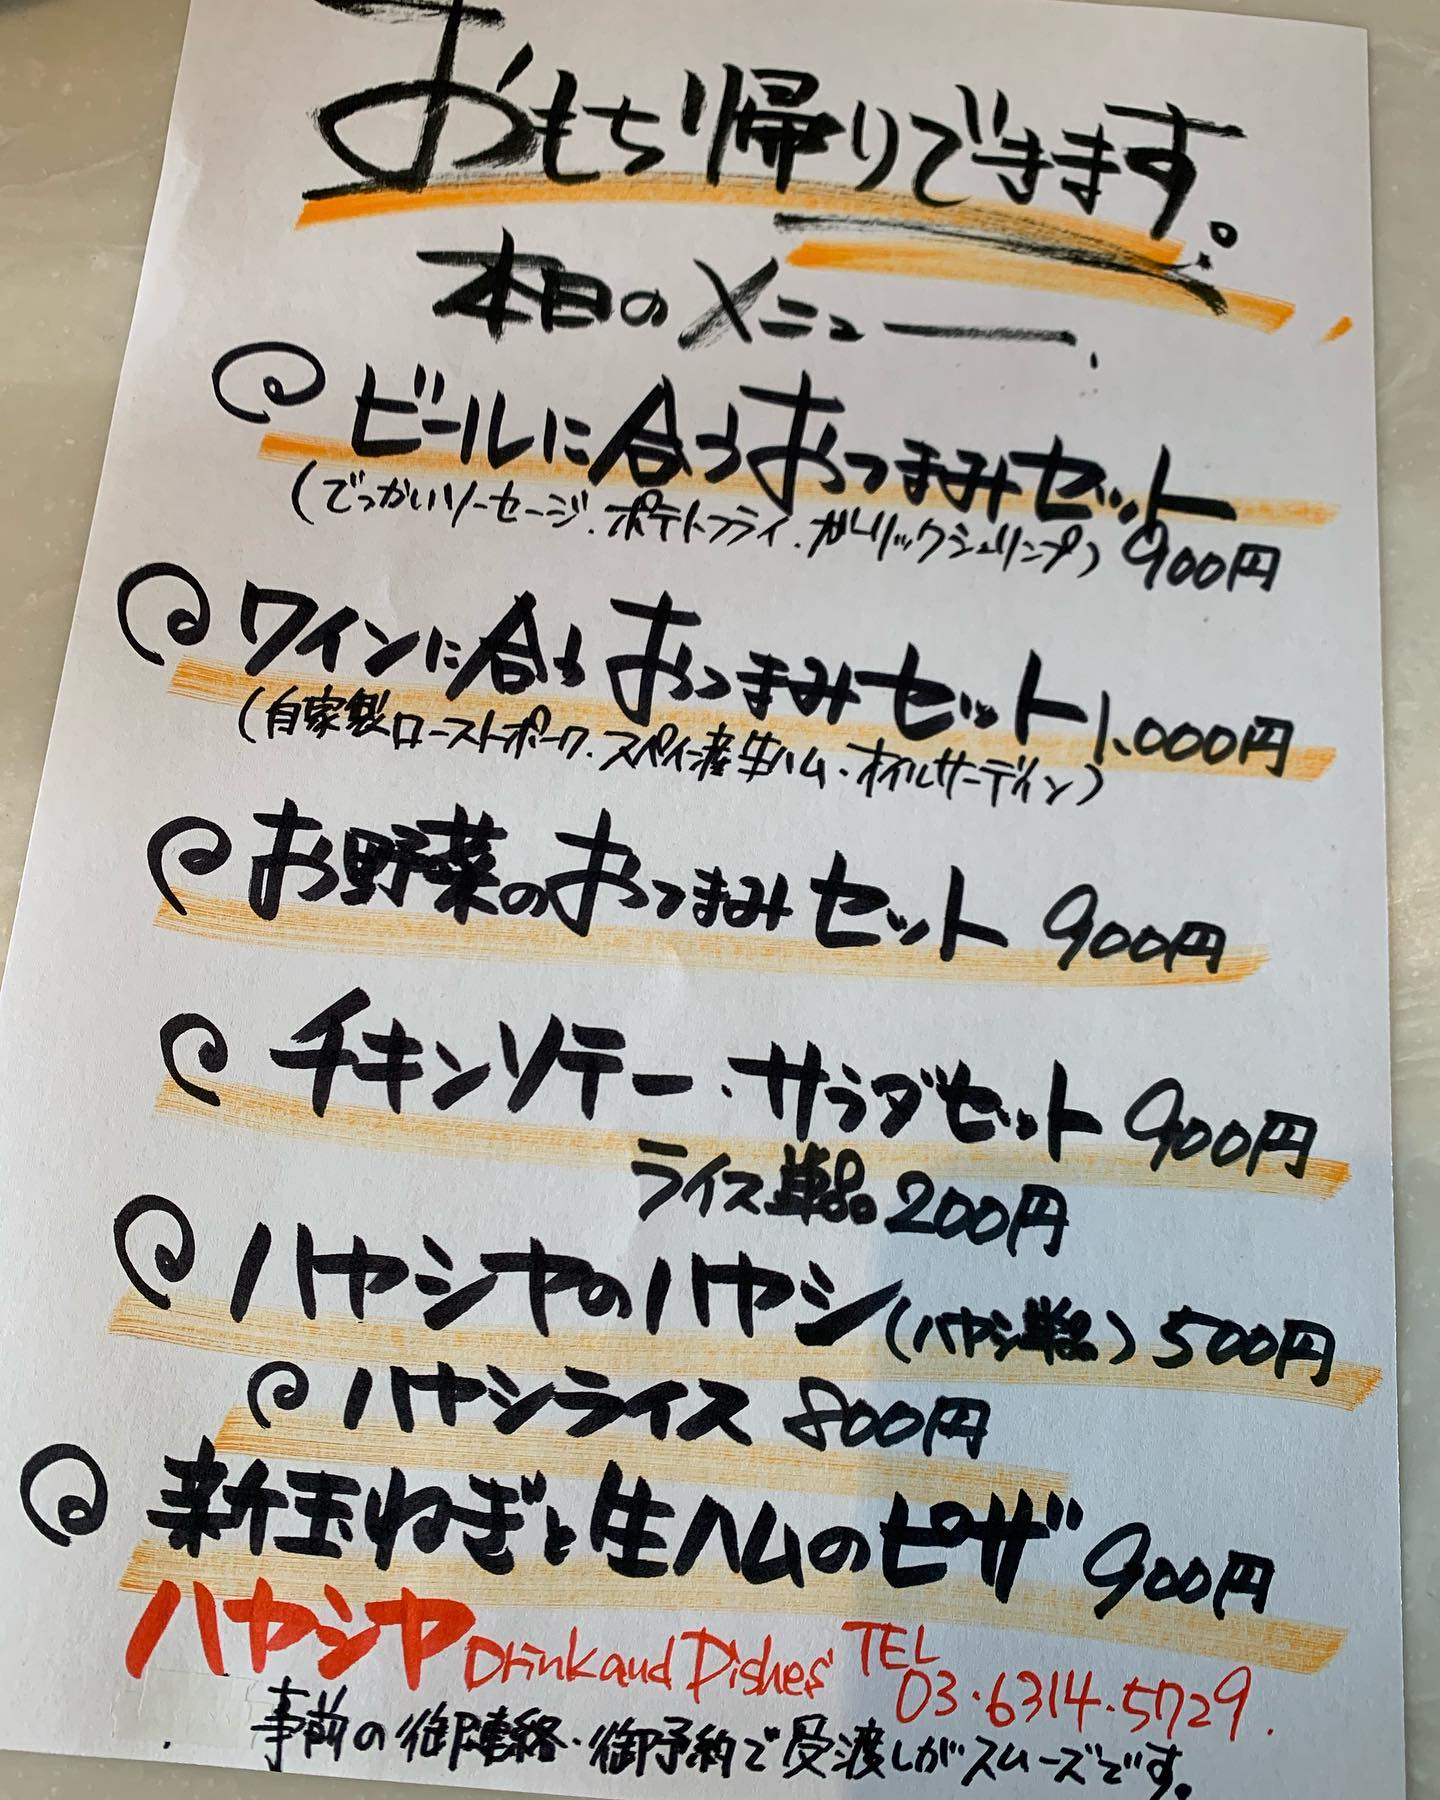 おもち帰りできます。
本日のメニュー
ビールに合うおつまみセット
(でっかいソーセージ.ポテトフライ.ガーリックシュリンプ) 900円
ワインに合うおつまみセット 1,000円
(自家製ローストポーク.スペイン産生ハム.オイルサーディン)
お野菜のおつまみセット 900円
チキンソテー.サラダセット 900円
ライス単品 200円
ハヤシヤのハヤシ(ハヤシ単品) 500円
ハヤシライス 800円
新玉ねぎと生ハムのピザ 900円
ハヤシヤ Drink and Dishes TEL 03.6314.5729.
事前の御連絡.御予約で受渡しがスムーズです。